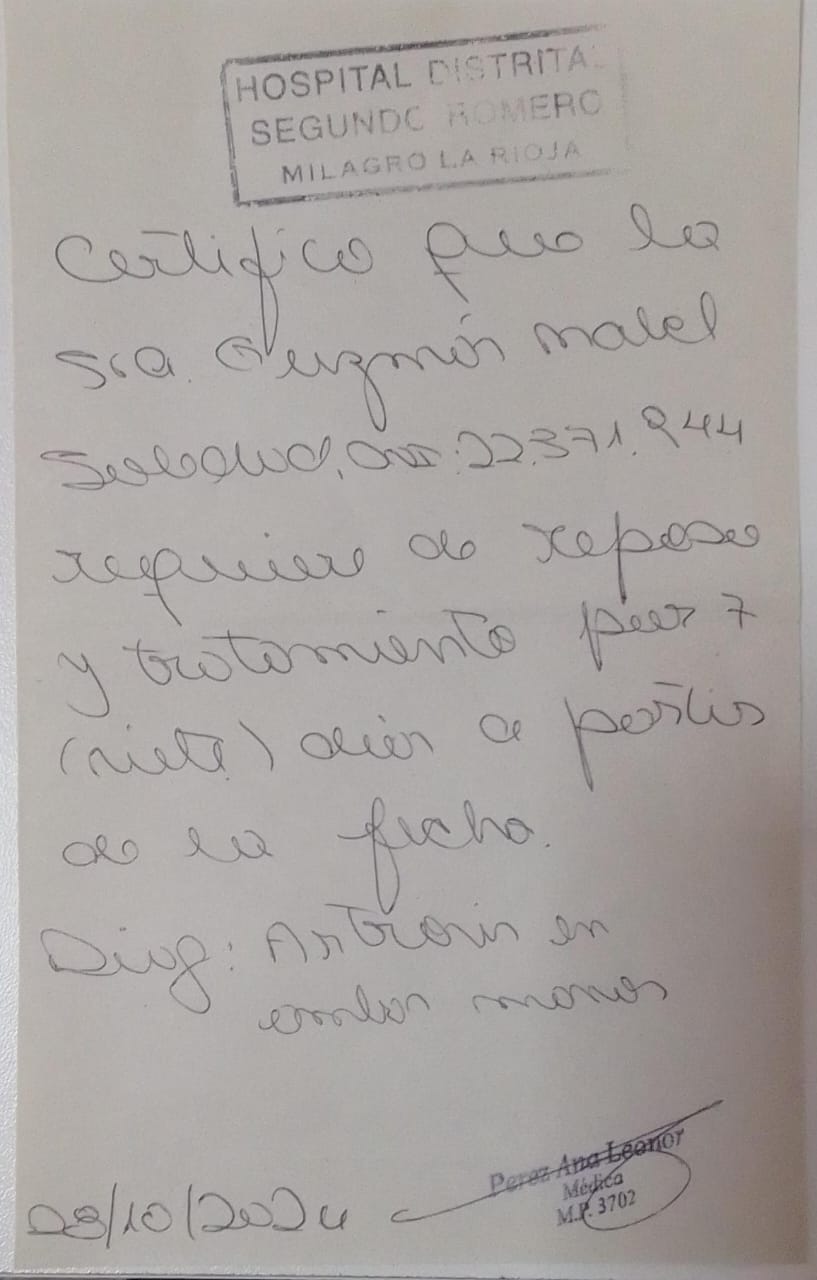 HOSPITAL DISTRITAL
SEGUNDO ROMERO
MILAGRO LA RIOJA
Certifico que la
Sra. Guzmán Mabel
Soledad, DNI: 22.371.944
requiere de reposo
y tratamiento por 7
(siete) días a partir
de la fecha.
Diag: Artrosis en
ambas manos
Perez Ana Leonor
Médica
M.P. 3702
28/10/2024